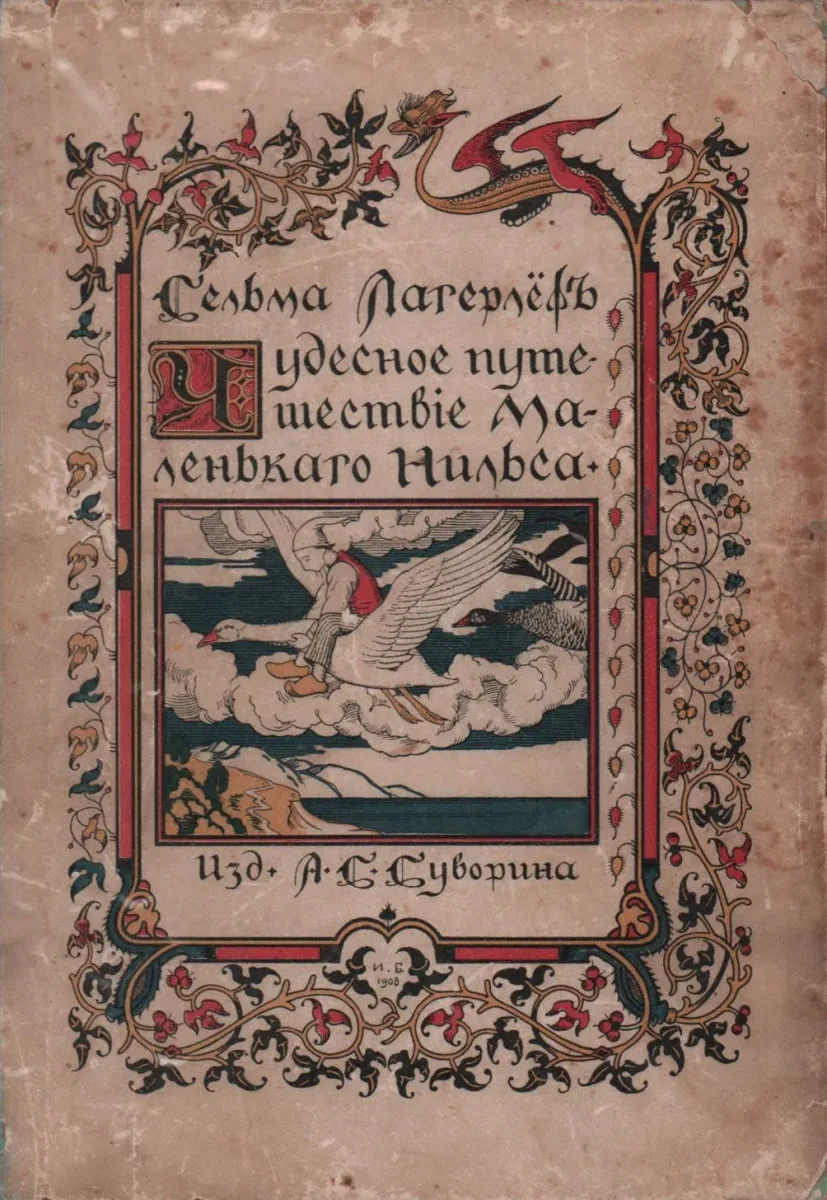 Сельма Лагерлёфъ
Чудесное путе-
шествіе Ма-
ленькаго Нильса
Изд. А. С. Суворина
И. Б.
1908